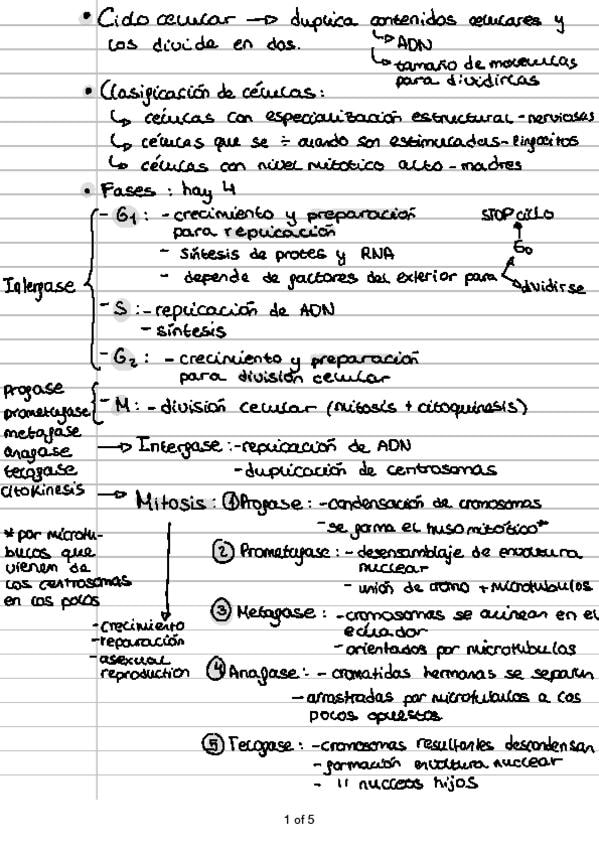 • Ciclo celular → duplica contenidos celulares y
los divide en dos.
↳ ADN
↳ tamaño de moléculas
para dividirlas
• Clasificación de células:
↳ células con especialización estructural - nerviosas
↳ células que se ÷ cuando son estimuladas - linfocitos
↳ células con nivel mitótico alto - madres
• Fases : hay 4
Interfase
- G1 : - crecimiento y preparación
para replicación
- síntesis de protes y RNA
- depende de factores del exterior para
STOP ciclo
G0
dividirse
- S : - replicación de ADN
- síntesis
- G2 : - crecimiento y preparación
para división celular
profase
prometafase
metafase
anafase
telofase
citokinesis
- M : - división celular (mitosis + citoquinesis)
→ Interfase : - replicación de ADN
- duplicación de centrosomas
→ Mitosis : ① Profase : - condensación de cromosomas
- se forma el huso mitótico*
* por microtu-
bulos que
vienen de
los centrosomas
en los polos
② Prometafase : - desensamblaje de envoltura
nuclear
- unión de cromo + microtubulos
- crecimiento
- reparación
- asexual
reproduction
③ Metafase : - cromosomas se alinean en el
ecuador
- orientados por microtubulos
④ Anafase : - cromatidas hermanas se separan
- arrastradas por microtubulos a los
polos opuestos
⑤ Telofase : - cromosomas resultantes descondensan
- formación envoltura nuclear
- 11 nucleos hijos
1 of 5